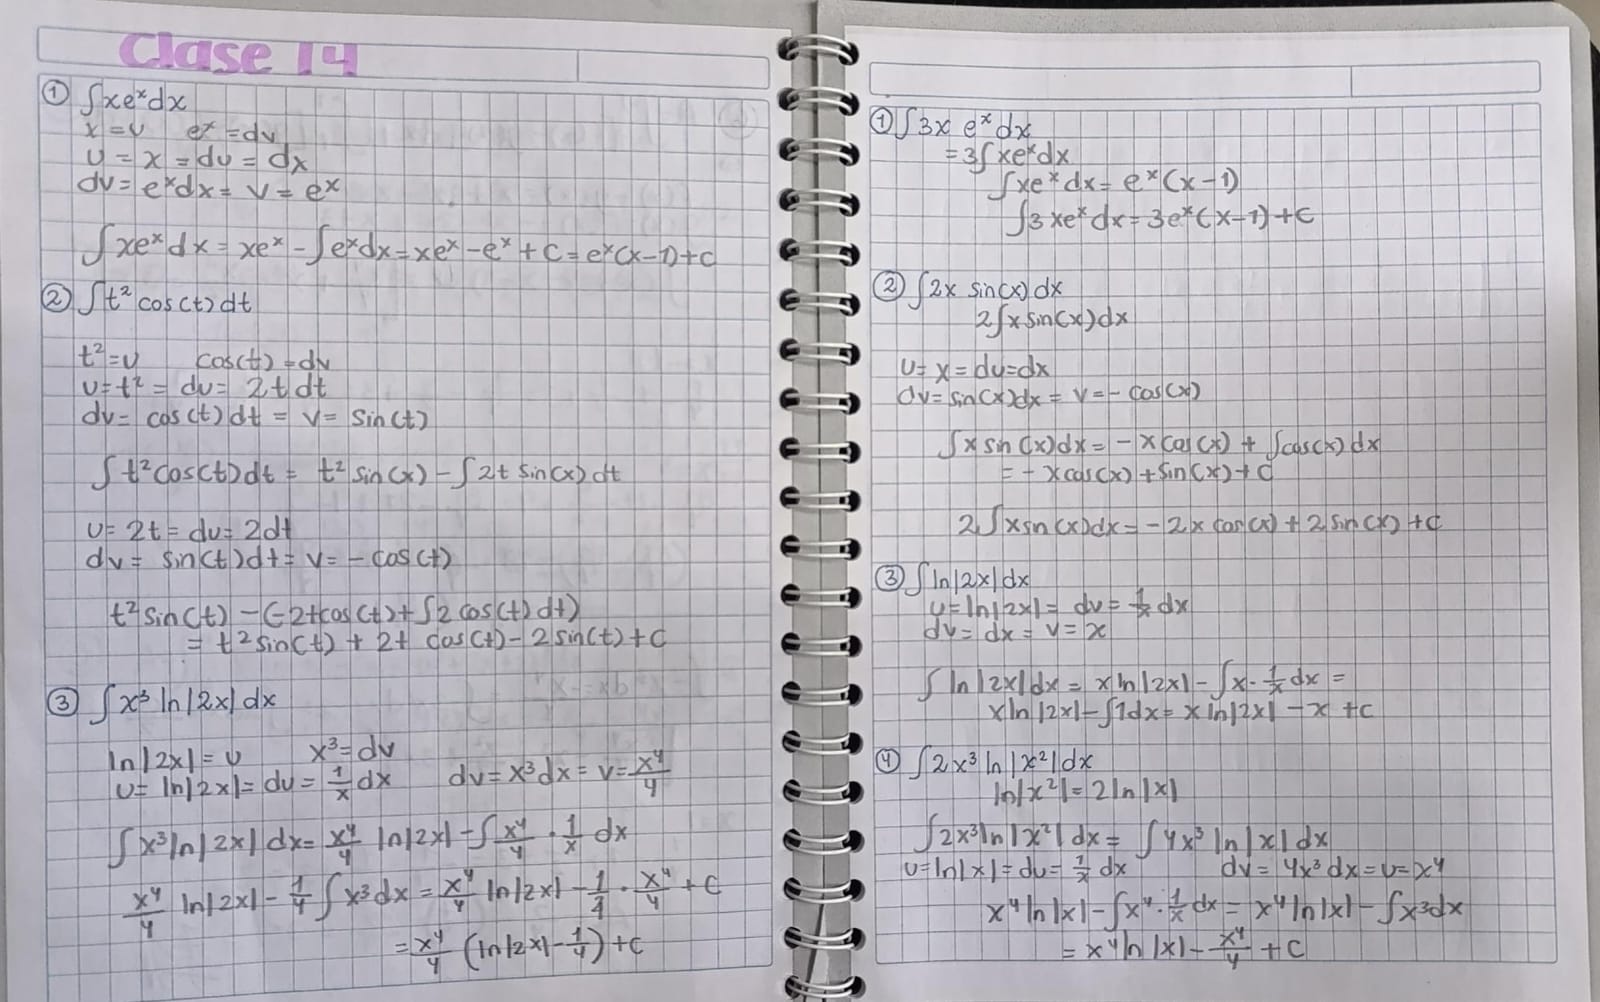 Clase 14
① ∫xeˣdx
x=u eˣ=dv
u=x=du=dx
dv=eˣdx=v=eˣ
∫xeˣdx=xeˣ-∫eˣdx=xeˣ-eˣ+C=eˣ(x-1)+C
② ∫t²cos(t)dt
t²=u cos(t)=dv
u=t²=du=2tdt
dv=cos(t)dt=v=sin(t)
∫t²cos(t)dt=t²sin(x)-∫2tsin(x)dt
u=2t=du=2dt
dv=sin(t)dt=v=-cos(t)
t²sin(t)-(-2tcos(t)+∫2cos(t)dt)
=t²sin(t)+2t cos(t)-2sin(t)+C
③ ∫x³ln|2x|dx
ln|2x|=u x³=dv
u=ln|2x|=du=1/x dx dv=x³dx=v=x⁴/4
∫x³ln|2x|dx=x⁴/4 ln|2x|-∫x⁴/4·1/x dx
x⁴/4 ln|2x|-1/4∫x³dx=x⁴/4 ln|2x|-1/4·x⁴/4+C
=x⁴/4(ln|2x|-1/4)+C
① ∫3x eˣdx
=3∫xeˣdx
∫xeˣdx=eˣ(x-1)
∫3xeˣdx=3eˣ(x-1)+C
② ∫2x sin(x)dx
2∫xsin(x)dx
u=x=du=dx
dv=sin(x)dx=v=-cos(x)
∫xsin(x)dx=-xcos(x)+∫cos(x)dx
=-xcos(x)+sin(x)+C
2∫xsn(x)dx=-2xcos(x)+2sin(x)+C
③ ∫ln|2x|dx
u=ln|2x|=du=1/x dx
dv=dx=v=x
∫ln|2x|dx=xln|2x|-∫x·1/x dx=
xln|2x|-∫1dx=xln|2x|-x+C
④ ∫2x³ln|x²|dx
ln|x²|=2ln|x|
∫2x³ln|x²|dx=∫4x³ln|x|dx
u=ln|x|=du=1/x dx dv=4x³dx=v=x⁴
x⁴ln|x|-∫x⁴·1/x dx=x⁴ln|x|-∫x³dx
=x⁴ln|x|-x⁴/4+C